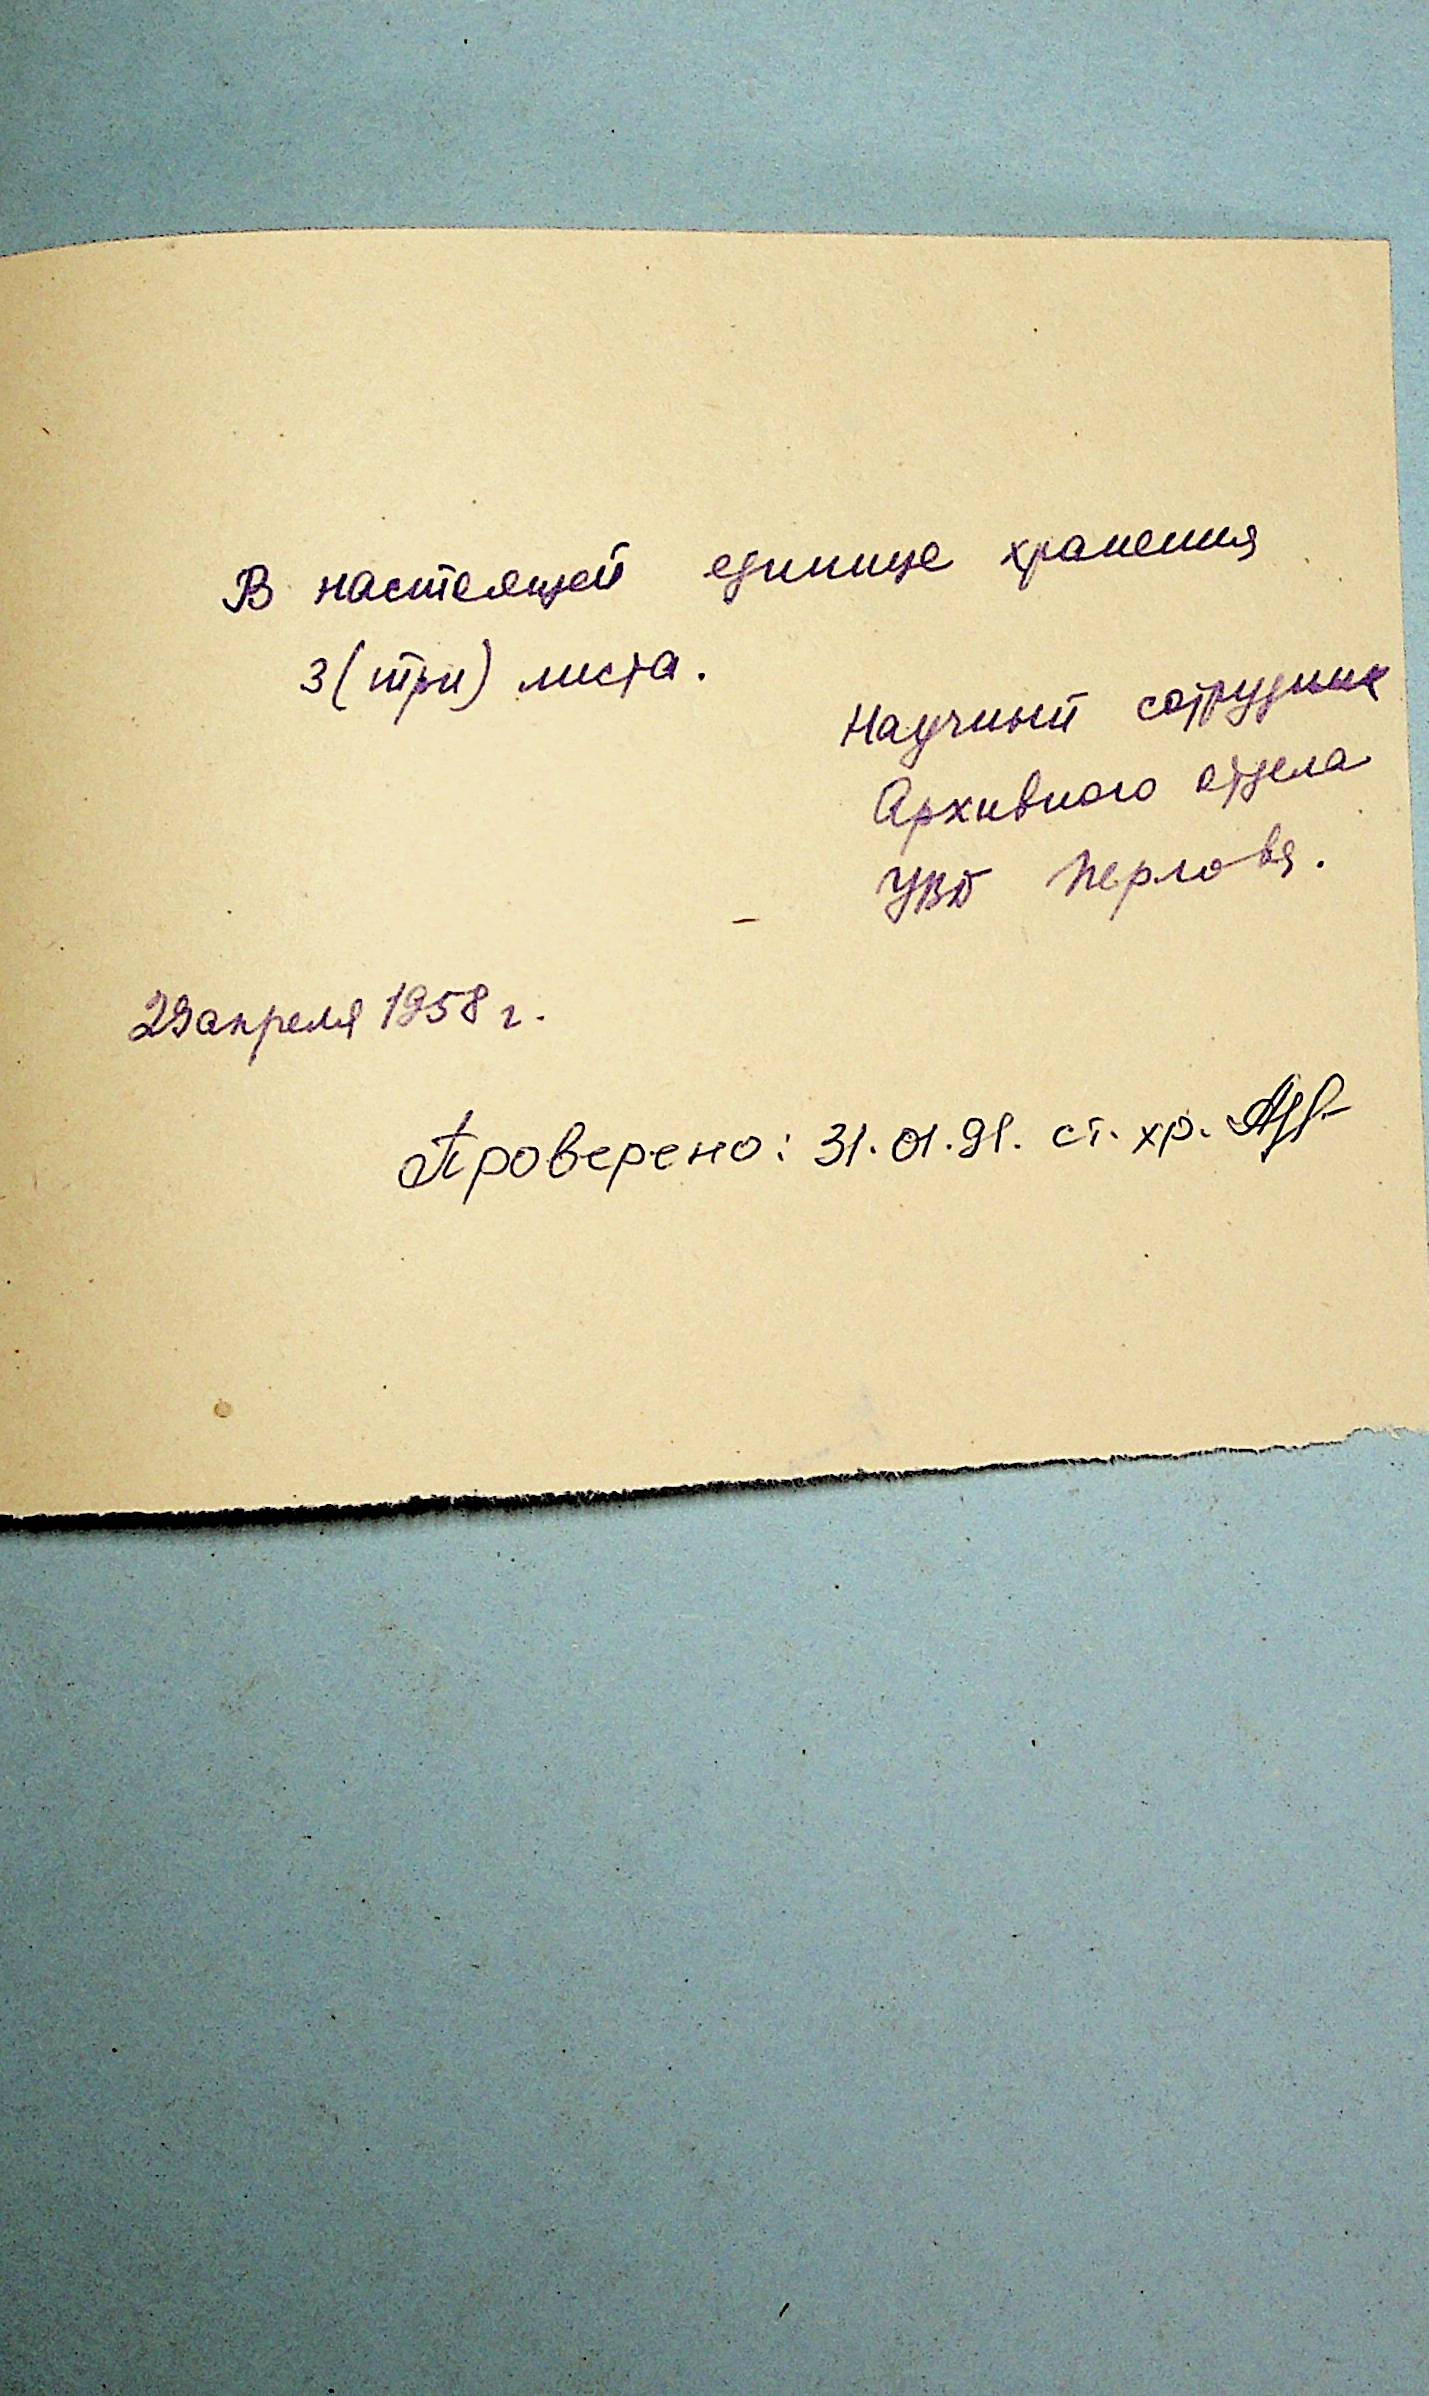 В настоящей единице хранения
3 (три) листа.
Научный сотрудник
Архивного отдела
УВД Перлова.
29 апреля 1958 г.
Проверено: 31.01.91. ст. хр.